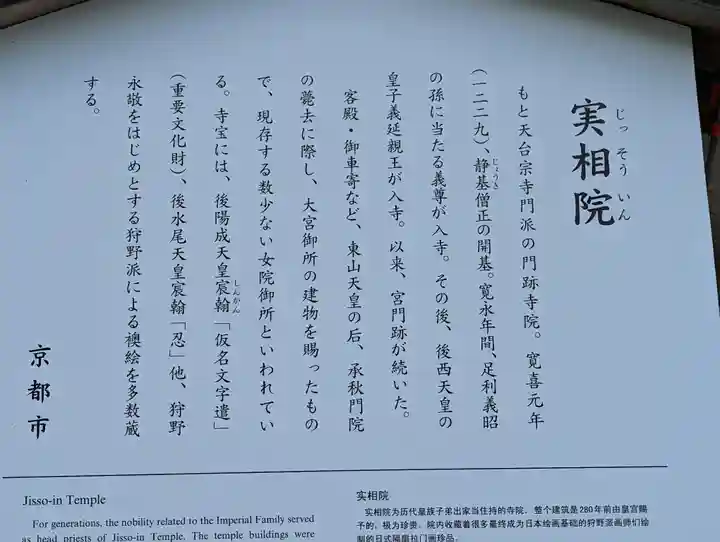 実相院
じっそういん
もと天台宗寺門派の門跡寺院。寛喜元年
(一二二九)、静基僧正の開基。寛永年間、足利義昭
じょうき
の孫に当たる義尊が入寺。その後、後西天皇の
皇子義延親王が入寺。以来、宮門跡が続いた。
客殿・御車寄など、東山天皇の后、承秋門院
の薨去に際し、大宮御所の建物を賜ったもの
で、現存する数少ない女院御所といわれてい
る。寺宝には、後陽成天皇宸翰「仮名文字遣」
しんかん
(重要文化財)、後水尾天皇宸翰「忍」他、狩野
永敬をはじめとする狩野派による襖絵を多数蔵
する。
京都市
Jisso-in Temple
For generations, the nobility related to the Imperial Family served
as head priests of Jisso-in Temple. The temple buildings were
实相院
实相院为历代皇族子弟出家当住持的寺院。整个建筑是280年前由皇宫赐
予的，极为珍贵。院内收藏着很多最终成为日本绘画基础的狩野派画师们绘
制的日式隔扇拉门画珍品。